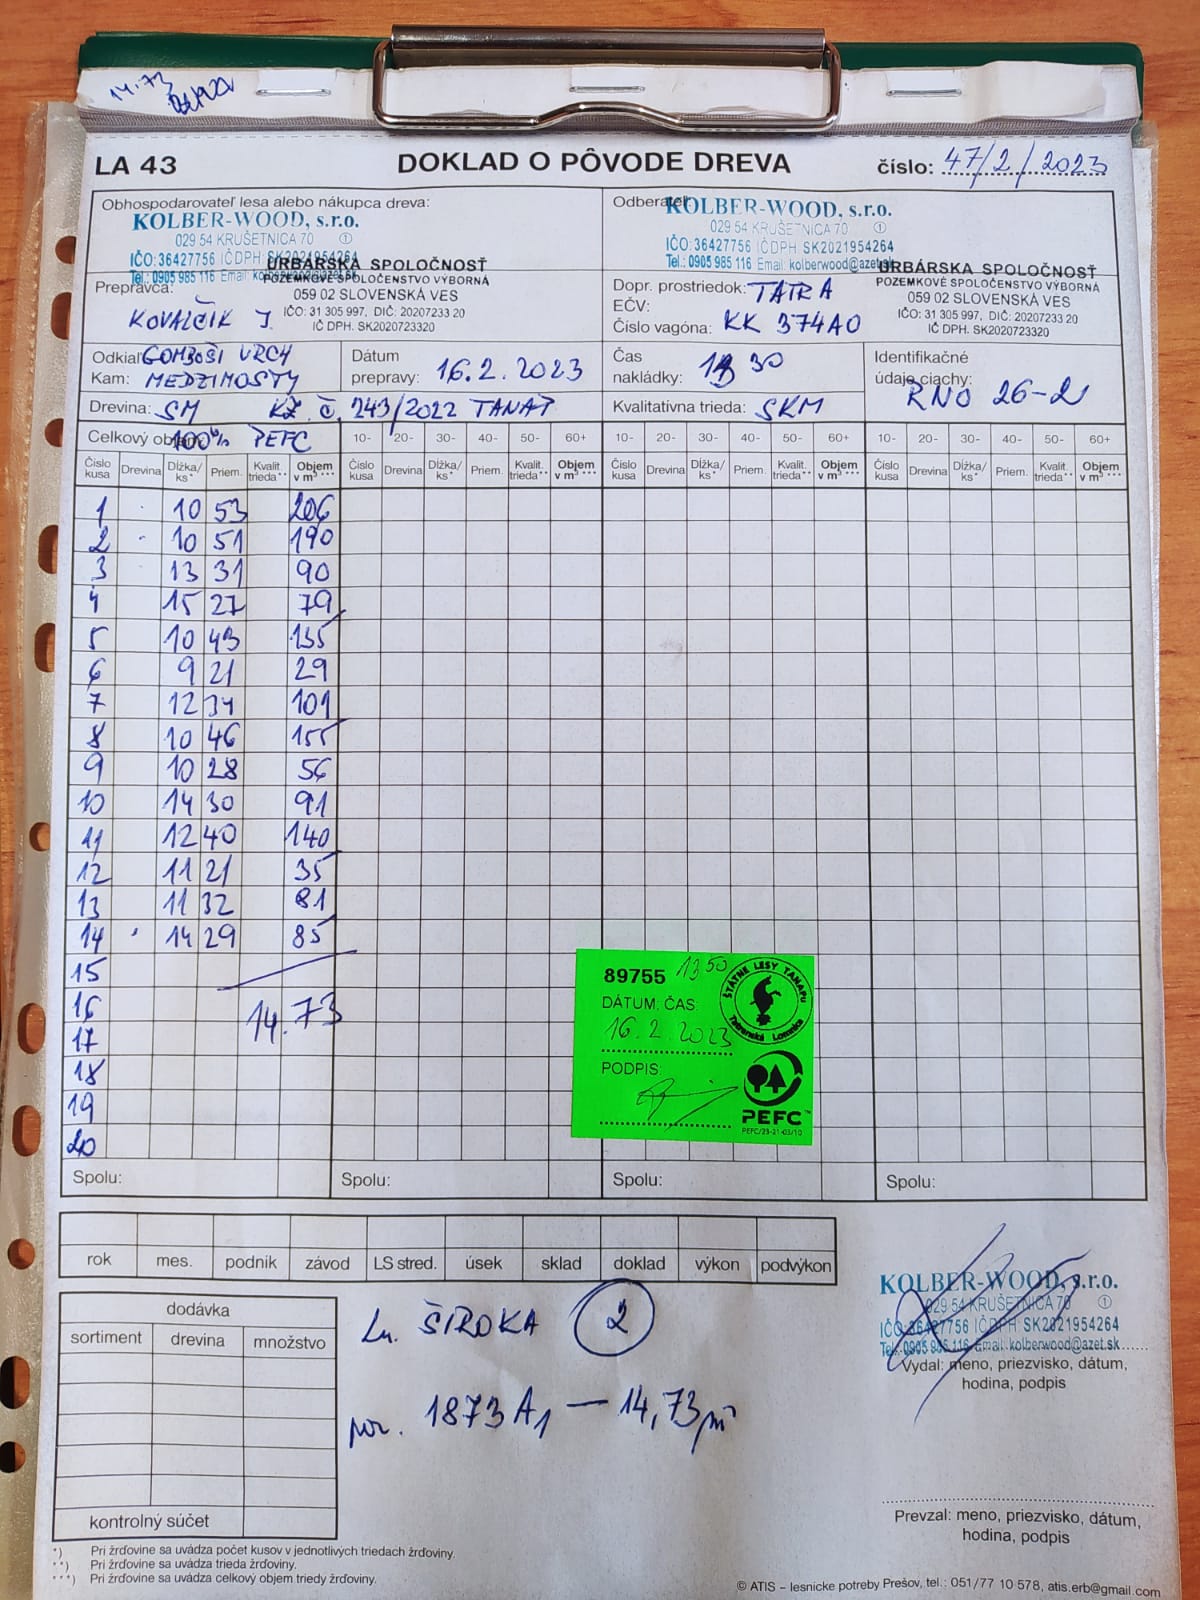 14.73
LA 43
DOKLAD O PÔVODE DREVA
číslo: 47/2/2023
Obhospodarovateľ lesa alebo nákupca dreva:
KOLBER-WOOD, s.r.o.
029 54 KRUŠETNICA 70 1
IČO: 36427756 IČ DPH: SK2021954264
Tel.: 0905 985 116 Email: kolberwood@azet.sk
URBÁRSKA SPOLOČNOSŤ
POZEMKOVÉ SPOLOČENSTVO VÝBORNÁ
059 02 SLOVENSKÁ VES
IČO: 31 305 997, DIČ: 20207233 20
IČ DPH. SK2020723320
Odberateľ:
KOLBER-WOOD, s.r.o.
029 54 KRUŠETNICA 70 1
IČO: 36427756 IČ DPH: SK2021954264
Tel.: 0905 985 116 Email: kolberwood@azet.sk
URBÁRSKA SPOLOČNOSŤ
POZEMKOVÉ SPOLOČENSTVO VÝBORNÁ
059 02 SLOVENSKÁ VES
IČO: 31 305 997, DIČ: 20207233 20
IČ DPH. SK2020723320
Prepravca:
KOVALČIK J.
Dopr. prostriedok: TATRA
EČV:
Číslo vagóna: KK 374AO
Odkiaľ: GOMBOŠI VRCH
Kam: MEDZIMOSTY
Dátum
prepravy: 16.2.2023
Čas
nakládky: 13 30
Identifikačné
údaje ciachy:
RNO 26-2
Drevina: SM KZ. č. 243/2022 TANAP
Kvalitatívna trieda: SKM
Celkový objem
100% PEFC
10- 20- 30- 40- 50- 60+ 10- 20- 30- 40- 50- 60+ 10- 20- 30- 40- 50- 60+
Číslo kusa Drevina Dĺžka/ ks* Priem. Kvalit. trieda** Objem v m³*** Číslo kusa Drevina Dĺžka/ ks* Priem. Kvalit. trieda** Objem v m³*** Číslo kusa Drevina Dĺžka/ ks* Priem. Kvalit. trieda** Objem v m³*** Číslo kusa Drevina Dĺžka/ ks* Priem. Kvalit. trieda** Objem v m³***
1 10 53 206
2 10 51 190
3 13 31 90
4 15 27 79
5 10 43 135
6 9 21 29
7 12 34 101
8 10 46 155
9 10 28 56
10 14 30 91
11 12 40 140
12 11 21 35
13 11 32 81
14 14 29 85
15
16 14.73
17
18
19
20
89755 13 50
DÁTUM, ČAS:
16.2.2023
PODPIS:
ŠTÁTNE LESY TANAPu
Tatranská Lomnica
PEFC™
PEFC/23-21-03/10
Spolu: Spolu: Spolu: Spolu:
rok mes. podnik závod LS stred. úsek sklad doklad výkon podvýkon
dodávka
sortiment drevina množstvo
kontrolný súčet
ŠIROKA 2
por. 1873 A1 — 14,73 m³
KOLBER-WOOD, s.r.o.
029 54 KRUŠETNICA 70 1
IČO: 36427756 IČ DPH SK2021954264
Tel.: 0905 985 116 Email: kolberwood@azet.sk
Vydal: meno, priezvisko, dátum,
hodina, podpis
Prevzal: meno, priezvisko, dátum,
hodina, podpis
*) Pri žrďovine sa uvádza počet kusov v jednotlivých triedach žrďoviny.
**) Pri žrďovine sa uvádza trieda žrďoviny.
***) Pri žrďovine sa uvádza celkový objem triedy žrďoviny.
© ATIS – lesnícke potreby Prešov, tel.: 051/77 10 578, atis.erb@gmail.com